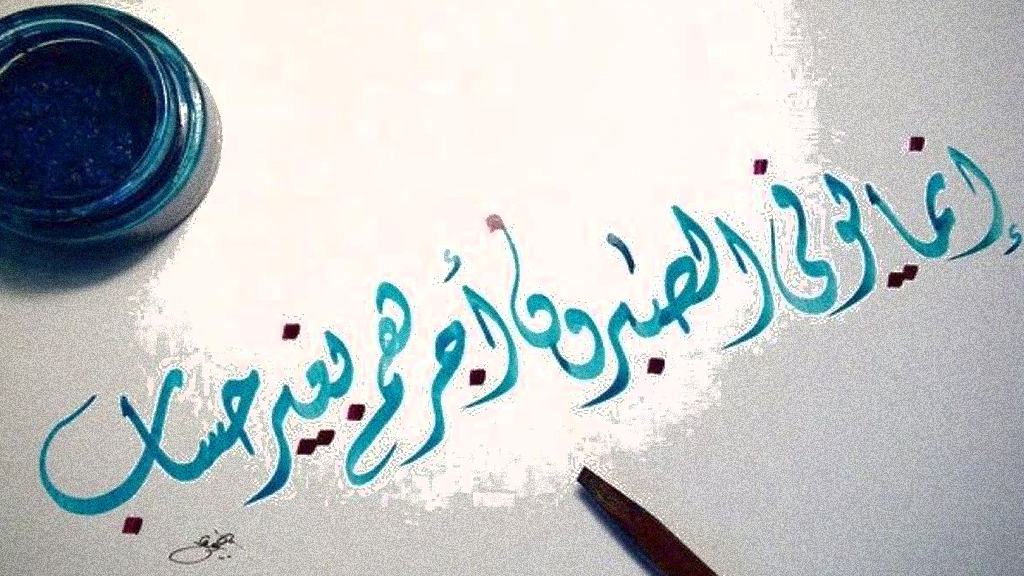 إنما يوفى الصبرون أجرهم بغير حساب